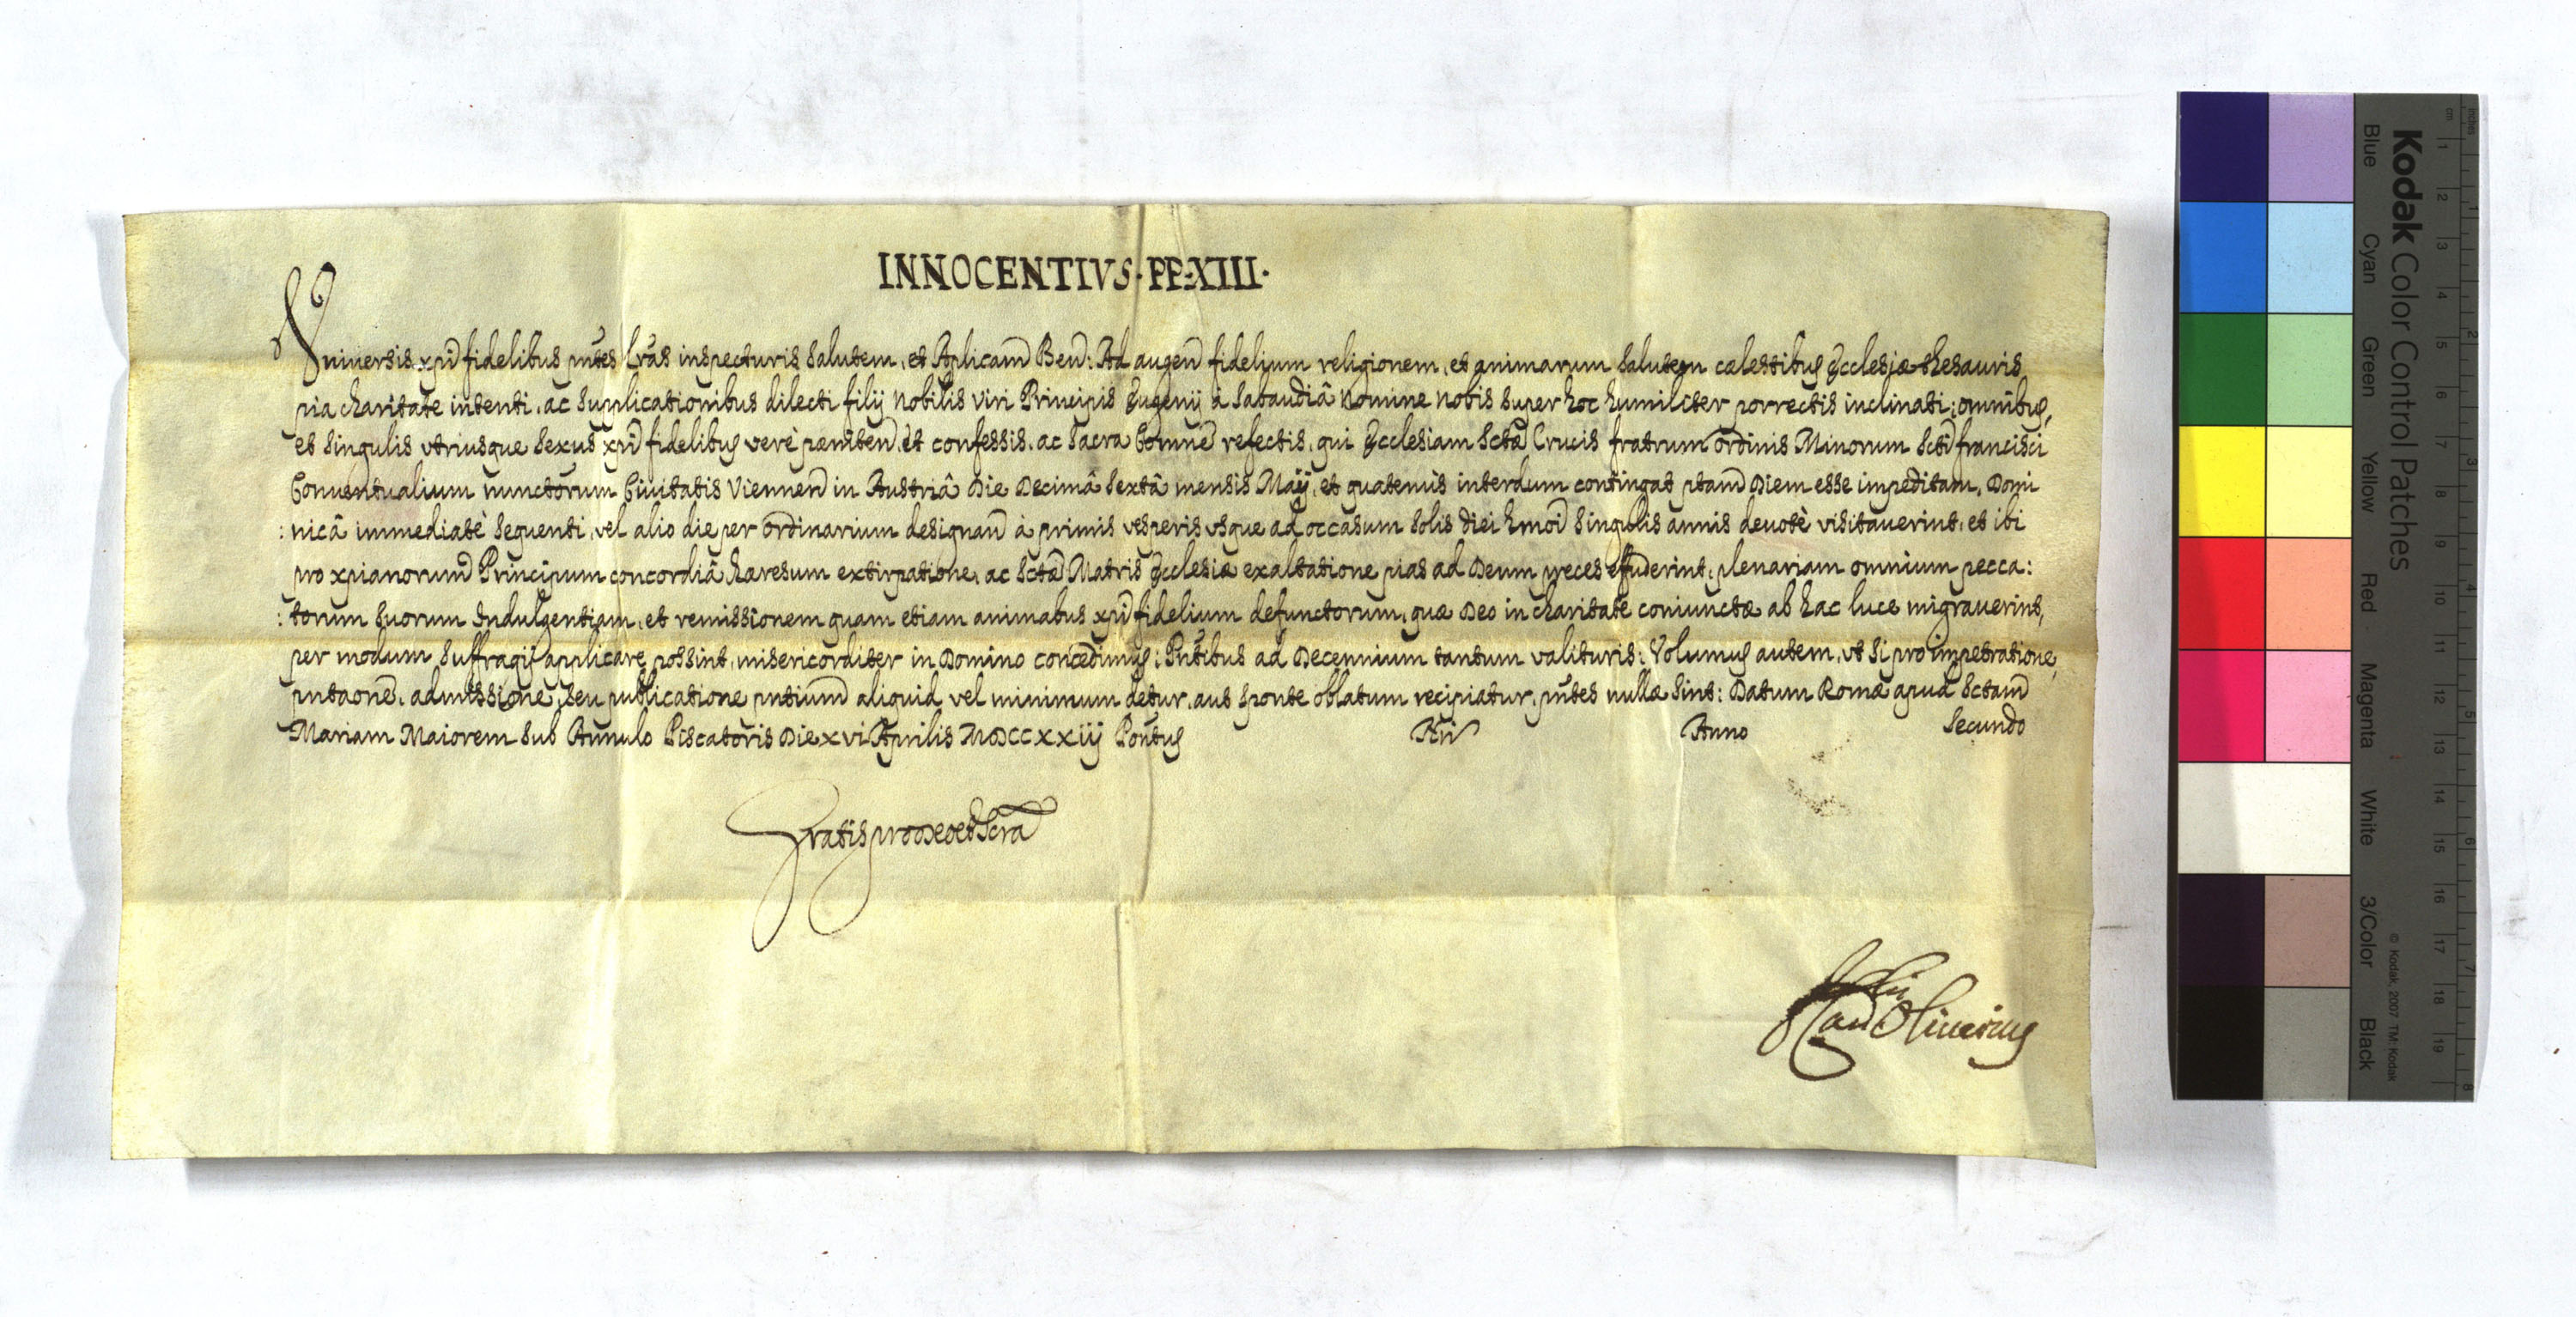 INNOCENTIVS · PP · XIII ·
Vniversis xp̄i fidelibus pn̄tes Lrās inspecturis salutem, et Aplicam̄ Ben̄: Ad augen̄ fidelium religionem, et animarum salutem cælestibus Ecclesiæ thesauris
pia charitate intenti, ac supplicationibus dilecti filij Nobilis viri Principis Eugenij à Sabaudiâ Nomine Nobis super hoc humiliter porrectis inclinati; omnibus,
et singulis vtriusque sexus xp̄i fidelibus verè pœniten̄, et confessis, ac Sacra Comne̅ refectis, qui Ecclesiam Sctæ̅ Crucis fratrum ordinis Minorum Scti̅ francisci
Conventualium nunctorum Ciuitatis Viennen̄ in Austriâ Die Decimâ Sextâ mensis Maij, et quatenùs interdum contingat ptam̄ Diem esse impeditam, Domi
: nicâ immediatè sequenti, vel alio die per Ordinarium designan̄ à primis vesperis vsque ad occasum solis diei hmoi̅ singulis annis deuotè visitauerint, et ibi
pro xpianorum̄ Principum concordiâ hæresum extirpatione, ac Sctæ̅ Matris Ecclesiæ exaltatione pias ad Deum preces effuderint, plenariam omnium pecca:
: torum suorum Indulgentiam, et remissionem quam etiam animabus xp̄i fidelium defunctorum, quæ Deo in charitate coniunctæ ab hac luce migrauerint,
per modum suffragij applicare possint, misericorditer in Domino concedimus: Pn̄tibus ad Decennium tantum valituris: Volumus autem, vt si pro impetratione,
pntaone̅, admissione, seu publicatione pntium̄ aliquid vel minimum detur, aut sponte oblatum recipiatur, pn̄tes nullæ sint: Datum Romæ apud Sctam̄
Mariam Maiorem sub Annulo Piscatoris Die xvi Aprilis MDCCxxiij Pontus̄ Nri̅ Anno Secundo
Gratis pro Deo et Scra̅
F Card Oliuerius